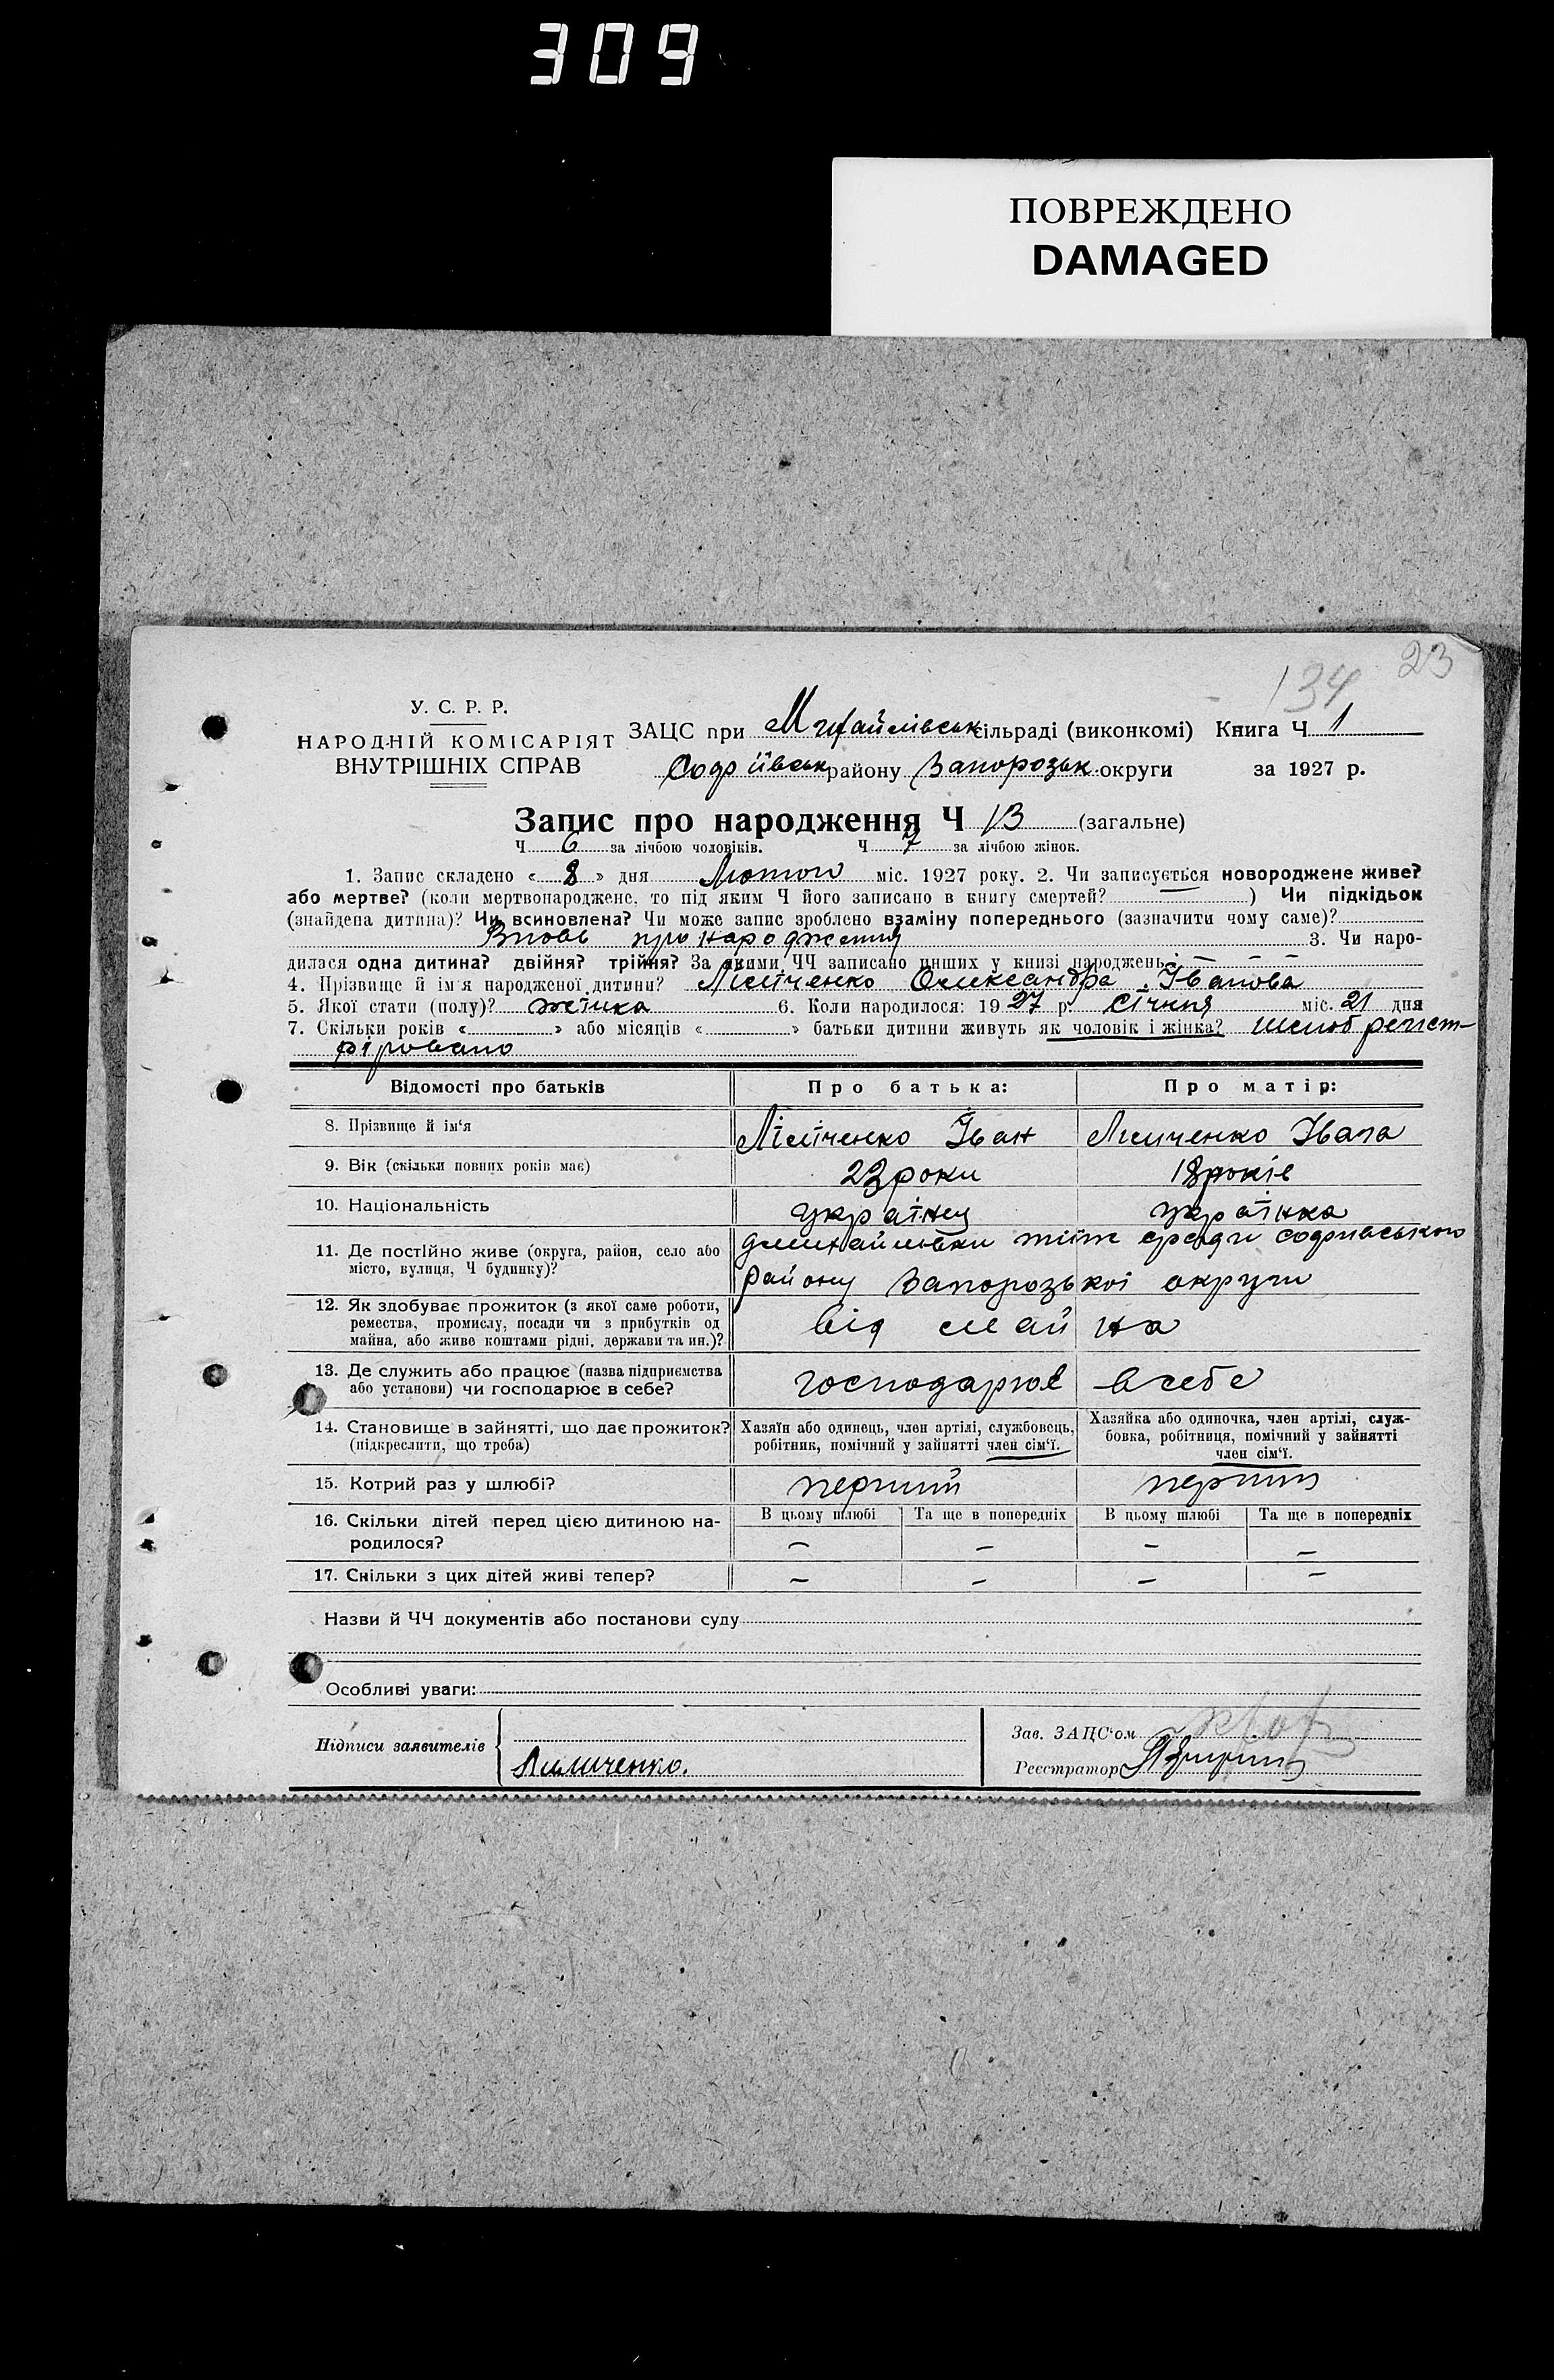 309
ПОВРЕЖДЕНО
DAMAGED
23
134
У. С. Р. Р.
НАРОДНІЙ КОМІСАРІЯТ
ВНУТРІШНІХ СПРАВ
ЗАЦС при Михайлівськ сільраді (виконкомі) Книга Ч 1
Софіївськ району Запорозьк. округи за 1927 р.
Запис про народження Ч 13 (загальне)
Ч 6 за лічбою чоловіків. Ч 7 за лічбою жінок.
1. Запис складено « 8 » дня Лютого міс. 1927 року. 2. Чи записується новороджене живе?
або мертве? (коли мертвонароджене, то під яким Ч його записано в книгу смертей? — ) Чи підкідьок
(знайдена дитина)? Чи всиновлена? Чи може запис зроблено взаміну попереднього (зазначити чому саме)?
Вновь про народження 3. Чи наро-
дилася одна дитина? двійня? трійня? За якими ЧЧ записано инших у книзі народжень: — — —
4. Прізвище й ім'я народженої дитини? Олександра Іванова
5. Якої стати (полу)? жінка 6. Коли народилося: 1927 р. січня міс. 21 дня
7. Скільки років « » або місяців « » батьки дитини живуть як чоловік і жінка? Шлюб регіст-
ріровано
Відомості про батьків Про батька: Про матір:
8. Прізвище й ім'я Іван
9. Вік (скільки повних років має) 23 роки 18 років
10. Національність українец українка
11. Де постійно живе (округа, район, село або
місто, вулиця, Ч будинку)?
району Запорозької округи
12. Як здобуває прожиток (з якої саме роботи,
ремества, промислу, посади чи з прибутків од
майна, або живе коштами рідні, держави та ин.)?
від майна
13. Де служить або працює (назва підприємства
або установи) чи господарює в себе?
господарює в себе
14. Становище в зайнятті, що дає прожиток?
(підкреслити, що треба)
Хазяїн або одинець, член артілі, службовець,
робітник, помічний у зайнятті член сім'ї.
Хазяйка або одиночка, член артілі, служ-
бовка, робітниця, помічний у зайнятті
член сім'ї.
15. Котрий раз у шлюбі? перший перший
16. Скільки дітей перед цією дитиною на-
родилося?
В цьому шлюбі Та ще в попередніх В цьому шлюбі Та ще в попередніх
— — — —
17. Скільки з цих дітей живі тепер? — — — —
Назви й ЧЧ документів або постанови суду
Особливі уваги:
Підписи заявителів
Зав. ЗАЦС'ом
Реєстратор